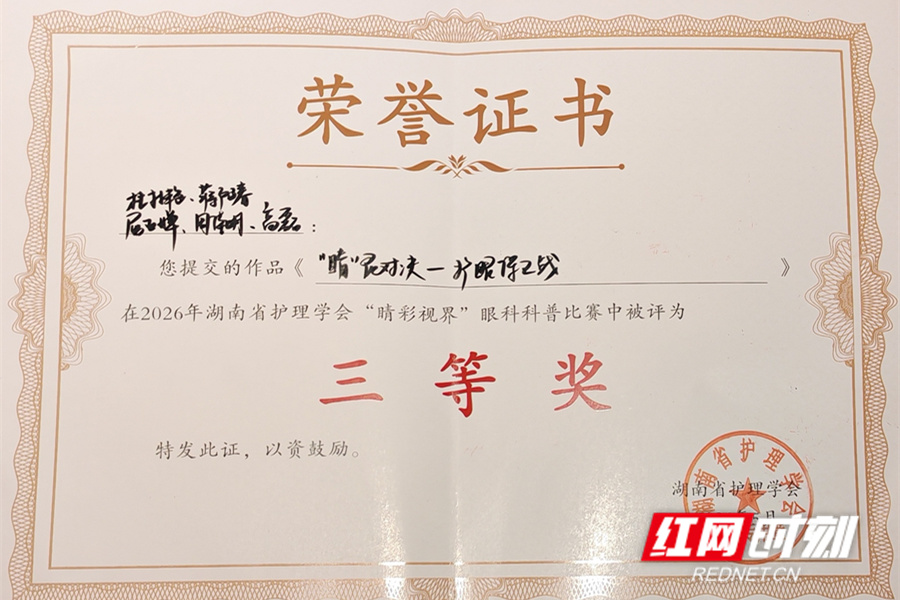 荣誉证书
高磊:
您提交的作品《“睛”对决—护眼保卫战》
在2026年湖南省护理学会“睛彩视界”眼科科普比赛中被评为
三等奖
特发此证，以资鼓励。
湖南省护理学会
湖南省护理学会
月
红网时刻
REDNET.CN